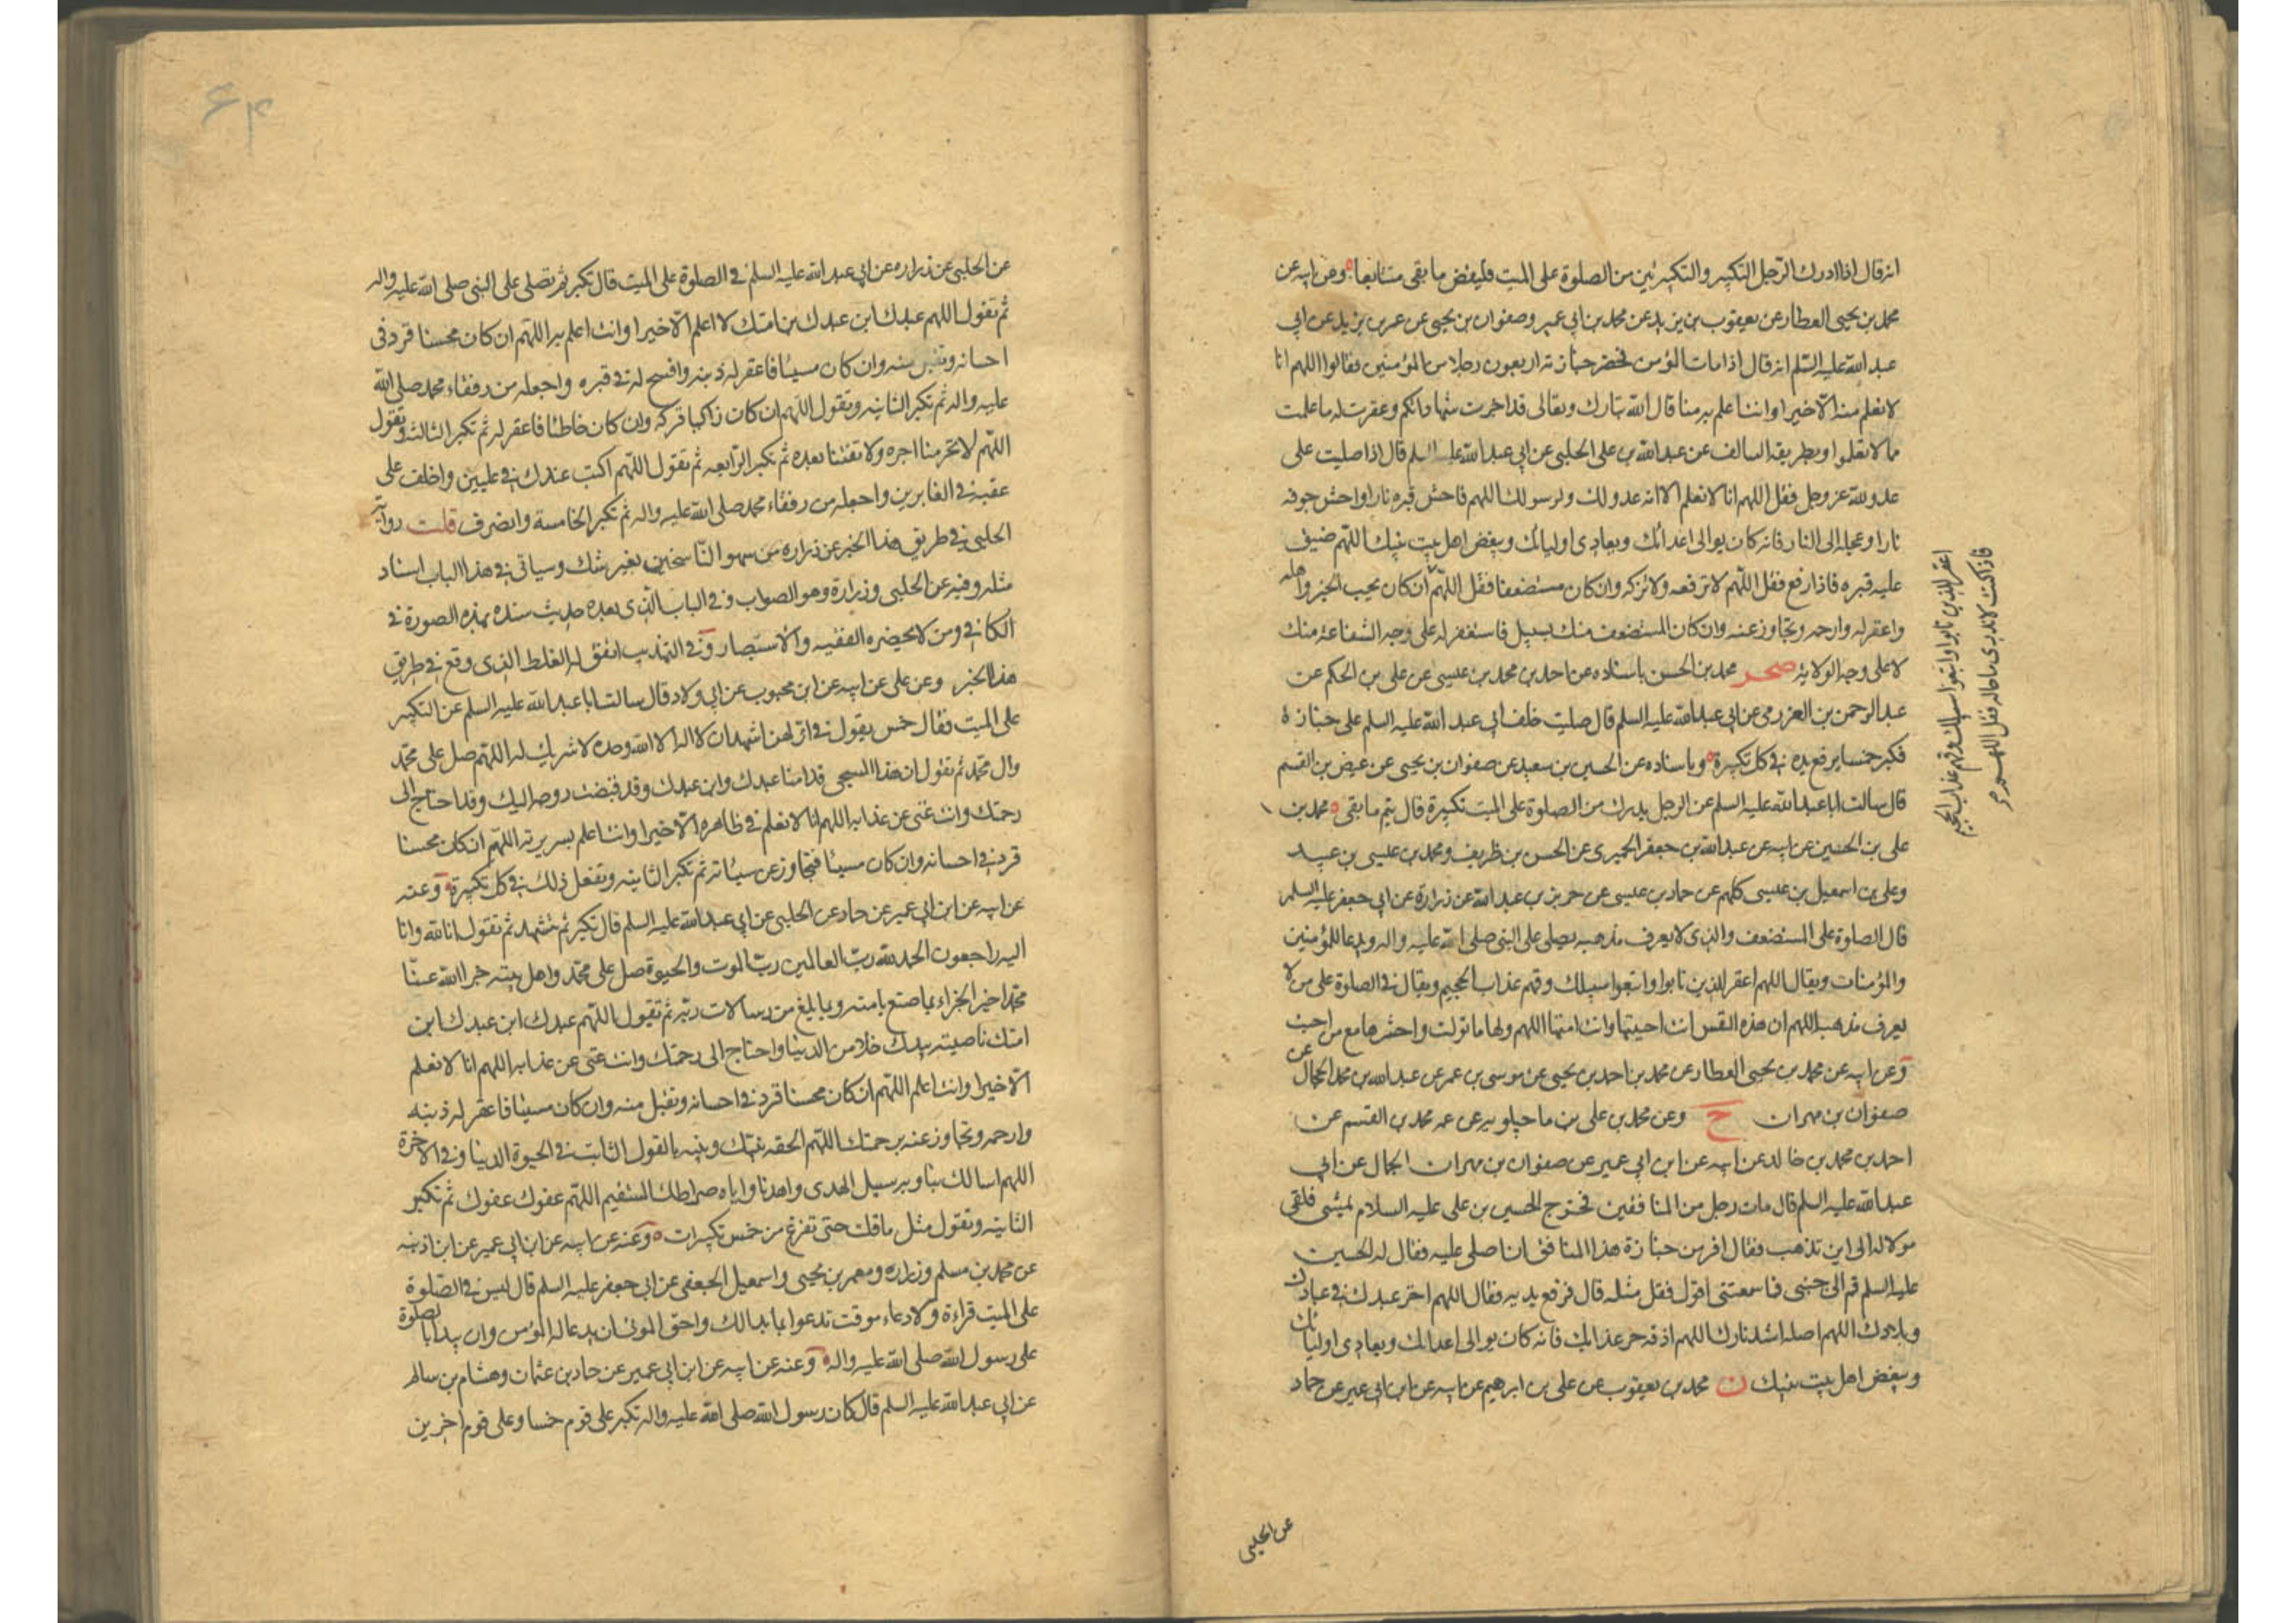 انه قال اذا ادرك الرجل التكبير والتكبيرتين من الصلوة على الميت فليقض ما بقى متتابعا وعن ابيه عن
محمد بن يحيى العطار عن يعقوب بن يزيد عن محمد بن ابي عمير وصفوان بن يحيى عن عمر بن يزيد عن ابي
عبد الله عليه السلم انه قال اذا مات المؤمن فحضر جنازته اربعون رجلا من المؤمنين فقالوا اللهم انا
لا نعلم منه الا خيرا وانت اعلم به منا قال الله تبارك وتعالى قد اجزت شهاداتكم وغفرت له ما علمت
ما لا تعلموا وبطريقه السالف عن عبد الله بن على الحلبى عن ابي عبد الله عليه السلم قال اذا صليت على
عدو لله عز وجل فقل اللهم انا لا نعلم الا انه عدو لك ولرسولك اللهم فاحش قبره نارا واحش جوفه
نارا وعجله الى النار فانه كان يوالى اعدائك ويعادى اوليائك ويبغض اهل بيت نبيك اللهم ضيق
عليه قبره فاذا رفع فقل اللهم لا ترفعه ولا تزكه وان كان مستضعفا فقل اللهم
اغفر للذين تابوا واتبعوا سبيلك وقهم عذاب الجحيم
فاذا كنت لا تدرى ما حاله فقل اللهم
ان كان يحب الخير واهله
واغفر له وارحمه وتجاوز عنه وان كان المستضعف منك بسبيل فاستغفر له على وجه الشفاعة منك
لا على وجه الولاية صحر محمد بن الحسن باسناده عن احمد بن محمد بن عيسى عن على بن الحكم عن
عبد الرحمن بن العزرمى عن ابي عبد الله عليه السلم قال صليت خلف ابي عبد الله عليه السلم على جنازة
فكبر خمسا يرفع يده في كل تكبيرة وباسناده عن الحسين بن سعيد عن صفوان بن يحيى عن عيص بن القسم
قال سالت ابا عبد الله عليه السلم عن الرجل يدرك من الصلوة على الميت تكبيرة قال يتم ما بقى محمد بن
على بن الحسين عن ابيه عن عبد الله بن جعفر الحميرى عن الحسن بن ظريف ومحمد بن عيسى بن عبيد
وعلى بن اسمعيل بن عيسى كلهم عن حماد بن عيسى عن حريز بن عبد الله عن زرارة عن ابي جعفر عليه السلم
قال الصلوة على المستضعف والذى لا يعرف مذهبه يصلى على النبى صلى الله عليه واله ويدعا للمؤمنين
والمؤمنات ويقال اللهم اغفر للذين تابوا واتبعوا سبيلك وقهم عذاب الجحيم ويقال في الصلوة على من لا
يعرف مذهبه اللهم ان هذه النفس انت احييتها وانت امتها اللهم ولها ما تولت واحشرها مع من احبت
وعن ابيه عن محمد بن يحيى العطار عن محمد بن احمد بن يحيى عن موسى بن عمر عن عبد الله بن محمد الحجال عن
صفوان بن مهران ح وعن محمد بن على بن ماجيلويه عن عمه محمد بن القسم عن
احمد بن محمد بن خالد عن ابيه عن ابن ابي عمير عن صفوان بن مهران الجمال عن ابي
عبد الله عليه السلم قال مات رجل من المنافقين فخرج الحسين بن على عليه السلام يمشى فلقى
مولا له الى اين تذهب فقال افر من جنازة هذا المنافق ان اصلى عليه فقال له الحسين
عليه السلم قم الى جنبى فما سمعتنى اقول فقل مثله قال فرفع يديه فقال اللهم اخز عبدك في عبادك
وبلادك اللهم اصله اشد نارك اللهم اذقه حر عذابك فانه كان يوالى اعدائك ويعادى اوليائك
ويبغض اهل بيت نبيك ن محمد بن يعقوب عن على بن ابرهيم عن ابيه عن ابن ابي عمير عن حماد
عن الحلبى
۶۴
عن الحلبى عن زرارة عن ابي عبد الله عليه السلم في الصلوة على الميت قال تكبر ثم تصلى على النبى صلى الله عليه واله
ثم تقول اللهم عبدك ابن عبدك بن امتك لا اعلم الا خيرا وانت اعلم به اللهم ان كان محسنا فزد في
احسانه وتقبل منه وان كان مسيئا فاغفر له ذنبه وافسح له في قبره واجعله من رفقاء محمد صلى الله
عليه واله ثم تكبر الثانية وتقول اللهم ان كان زاكيا فزكه وان كان خاطئا فاغفر له ثم تكبر الثالثة وتقول
اللهم لا تحرمنا اجره ولا تفتنا بعده ثم تكبر الرابعة ثم تقول اللهم اكتب عندك في عليين واخلف على
عقبه في الغابرين واجعله من رفقاء محمد صلى الله عليه واله ثم تكبر الخامسة وانصرف قلت رواية
الحلبى في طريق هذا الخبر عن زرارة من سهو الناسخين بغير شك وسياتى في هذا الباب اسناد
مثله وفيه عن الحلبى وزرارة وهو الصواب وفي الباب الذى بعده حديث سنده بهذه الصورة في
الكافي ومن لا يحضره الفقيه والاستبصار وفي التهذيب اتفق له الغلط الذى وقع في طريق
هذا الخبر وعن على عن ابيه عن ابن محبوب عن ابي ولاد قال سالت ابا عبد الله عليه السلم عن التكبير
على الميت فقال خمس يقول في اولهن اشهد ان لا اله الا الله وحده لا شريك له اللهم صل على محمد
وال محمد ثم تقول ان هذا المسجى قدامنا عبدك وابن عبدك وقد قبضت روحه اليك وقد احتاج الى
رحمتك وانت غنى عن عذابه اللهم انا لا نعلم في ظاهره الا خيرا وانت اعلم بسريرته اللهم ان كان محسنا
فزد في احسانه وان كان مسيئا فتجاوز عن سيئاته ثم تكبر الثانية وتفعل ذلك في كل تكبيرة وعنه
عن ابيه عن ابن ابي عمير عن حماد عن الحلبى عن ابي عبد الله عليه السلم قال تكبر ثم تشهد ثم تقول انا لله وانا
اليه راجعون الحمد لله رب العالمين رب الموت والحيوة صل على محمد واهل بيته جزا الله عنا
محمدا خير الجزاء بما صنع بامته وبما بلغ من رسالات ربه ثم تقول اللهم عبدك ابن عبدك ابن
امتك ناصيته بيدك خلا من الدنيا واحتاج الى رحمتك وانت غنى عن عذابه اللهم انا لا نعلم
الا خيرا وانت اعلم اللهم ان كان محسنا فزد في احسانه وتقبل منه وان كان مسيئا فاغفر له ذنبه
وارحمه وتجاوز عنه برحمتك اللهم الحقه بنبيك وثبته بالقول الثابت في الحيوة الدنيا وفي الاخرة
اللهم اسالك بنا وبه سبيل الهدى واهدنا واياه صراطك المستقيم اللهم عفوك عفوك ثم تكبر
الثانية وتقول مثل ما قلت حتى تفرغ من خمس تكبيرات وعنه عن ابيه عن ابن ابي عمير عن ابن اذينه
عن محمد بن مسلم وزرارة ومعمر بن يحيى واسمعيل الجعفى عن ابي جعفر عليه السلم قال ليس في الصلوة
على الميت قراءة ولا دعاء موقت تدعوا بما بدا لك واحق الموتى ان يدعا له المؤمن وان يبدا بالصلوة
على رسول الله صلى الله عليه واله وعنه عن ابيه عن ابن ابي عمير عن حماد بن عثمان وهشام بن سالم
عن ابي عبد الله عليه السلم قال كان رسول الله صلى الله عليه واله تكبر على قوم خمسا وعلى قوم اخرين